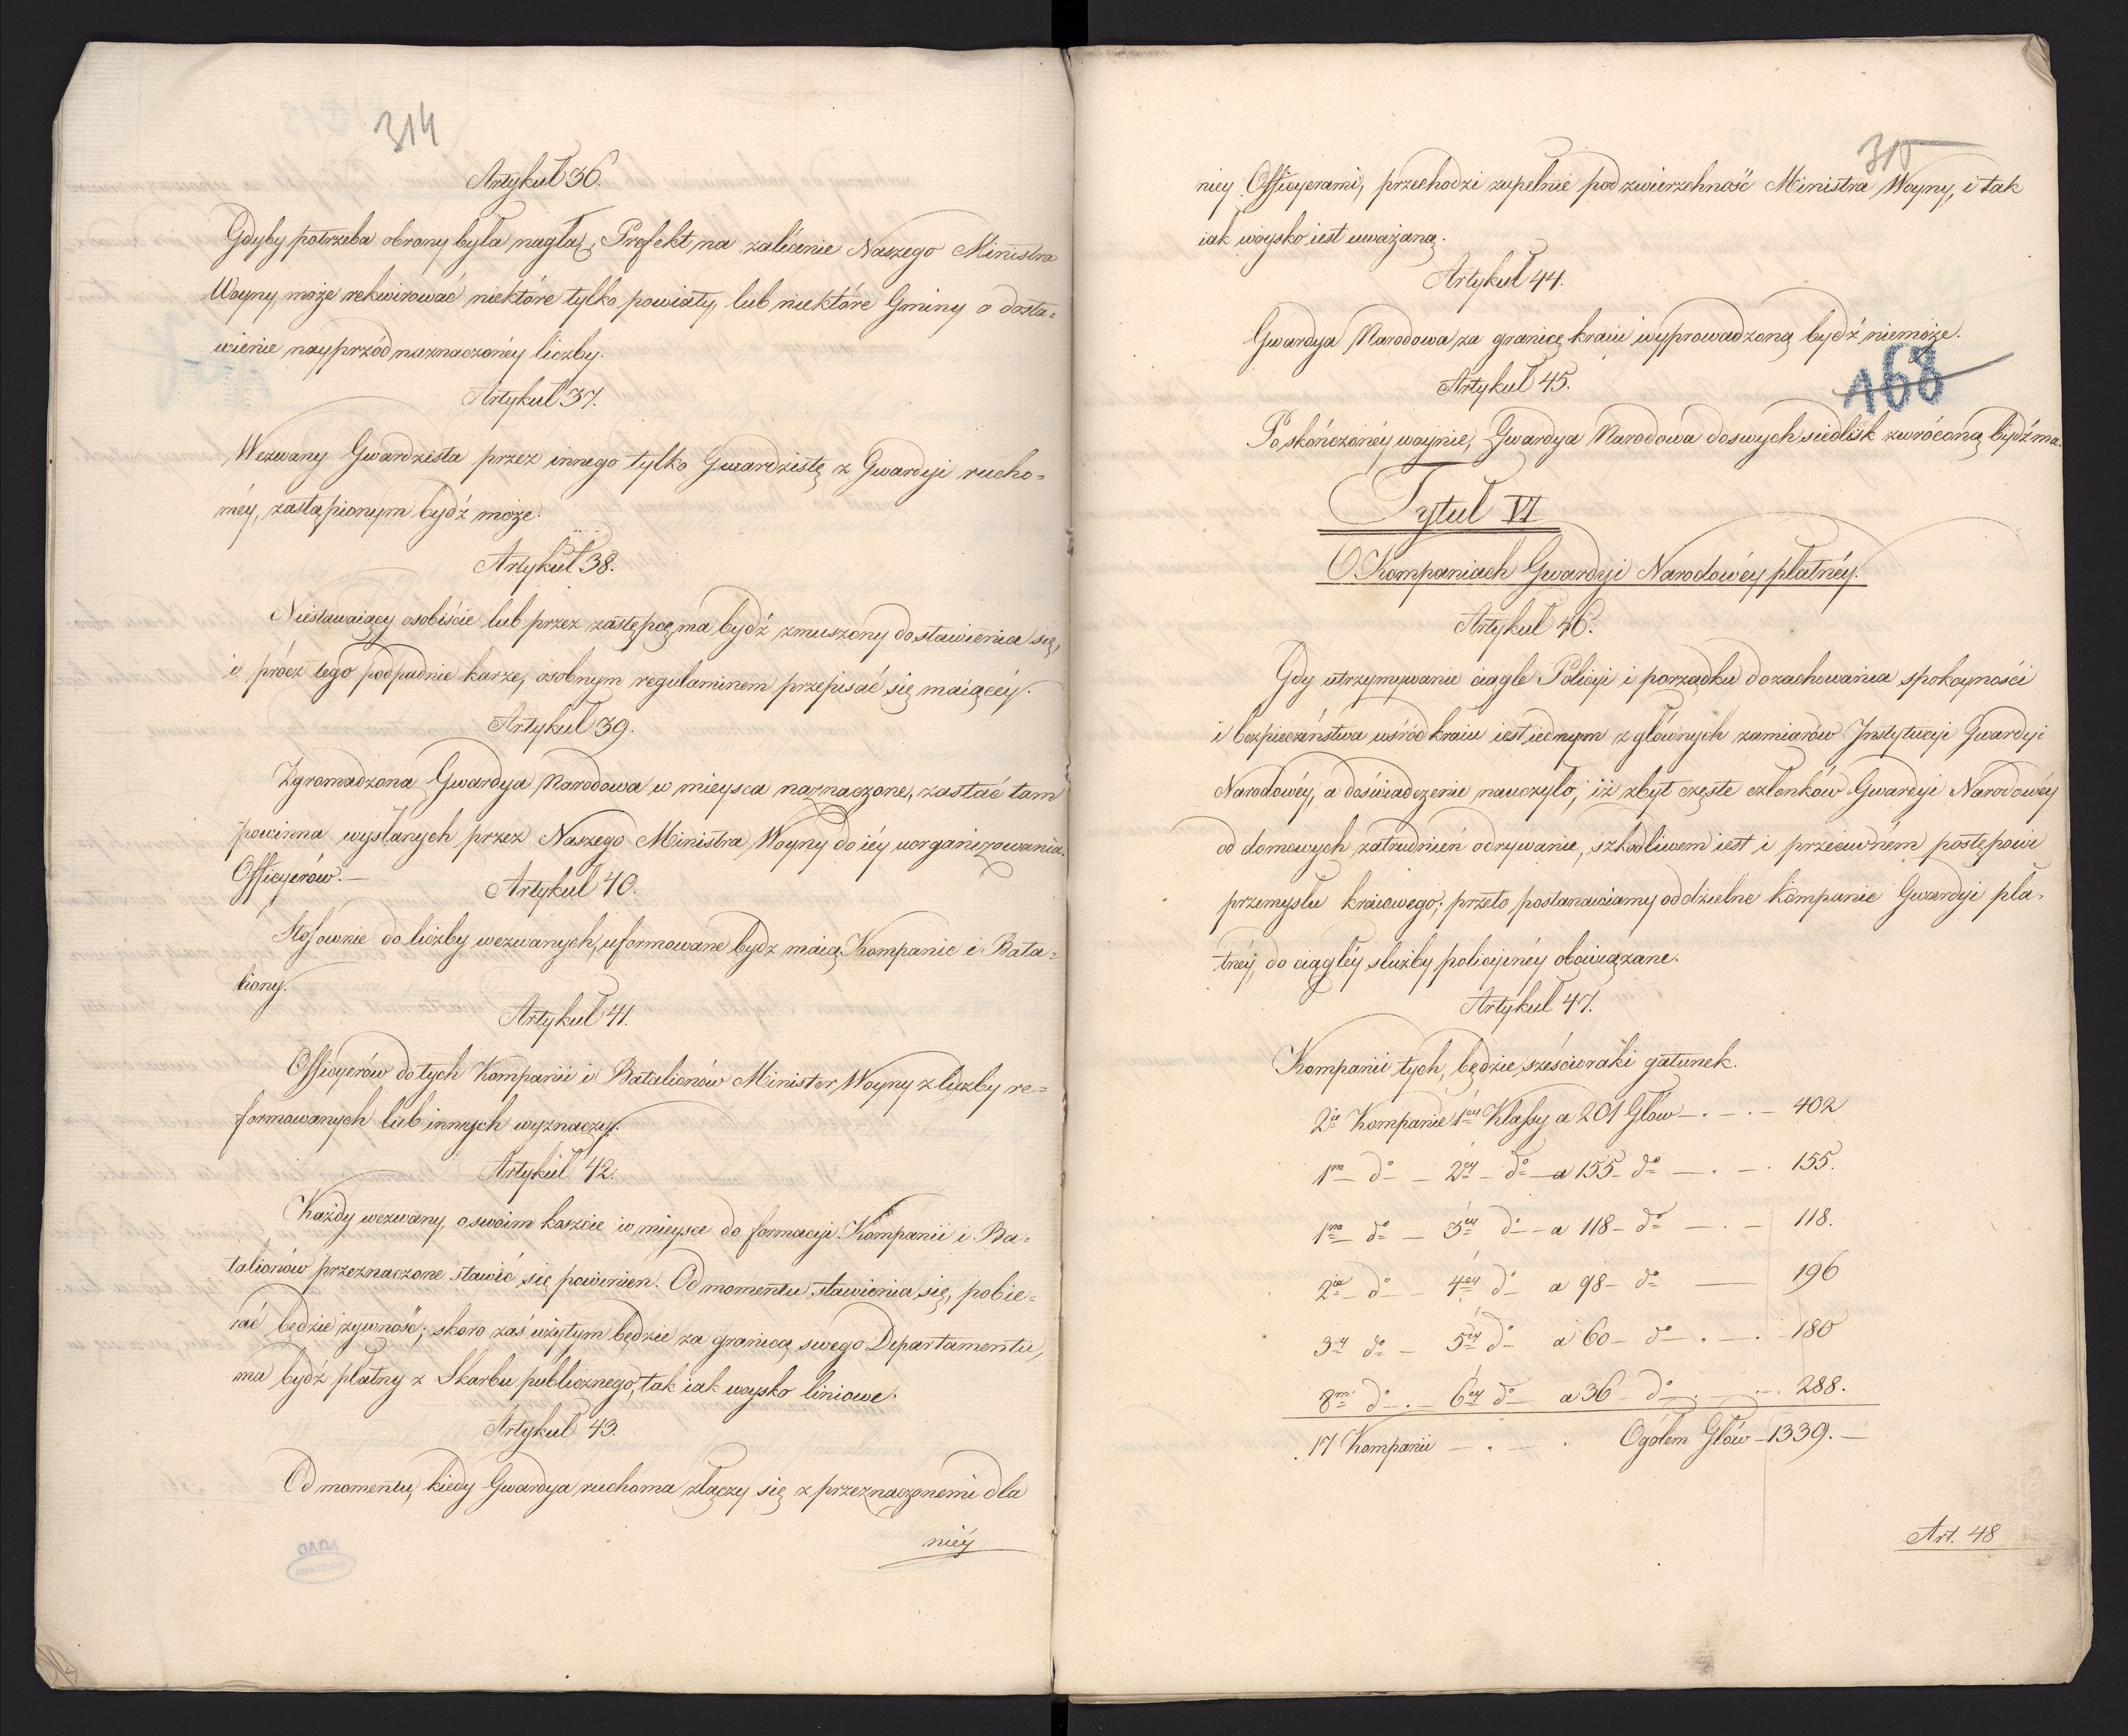 314
Artykuł 36.
Gdyby potrzeba obrony była nagłą, Prefekt na zalécenie Naszego Ministra
Woyny, może rekwirować niektóre tylko powiaty, lub niektóre Gminy o dosta=
wienie nayprzód naznaczonéy liczby.
Artykuł 37.
Wezwany Gwardzista przez innego tylko Gwardzistę z Gwardyi rucho=
méy, zastąpionym bydź może.
Artykuł 38.
Niestawaiący osobiście lub przez zastępcę ma bydź zmuszony do stawienia się,
i prócz tego podpadnie karze, osobnym regulaminem przepisać się maiącéy.
Artykuł 39.
Zgromadzona Gwardya Narodowa w mieysca naznaczone, zastać tam
powinna wysłanych przez Naszego Ministra Woyny do iéy uorganizowania
Officyerów.—
Artykuł 40.
Stosownie do liczby wezwanych, uformowane bydz maią Kompanie i Bata=
liony.
Artykuł 41.
Officyerów do tych Kompanii i Batalionów Minister Woyny z liczby re=
formowanych lub innych wyznaczy.
Artykuł 42.
Każdy wezwany, o swoim koszcie w mieysce do formacyi Kompanii i Ba=
talionów przeznaczone stawić się powinien. Od momentu stawienia się, pobie=
rać będzie żywność; skoro zaś użytym będzie za granicą swego Departamentu,
ma bydź płatny z Skarbu publicznego, tak iak woysko liniowe.
Artykuł 43.
Od momentu, kiedy Gwardya ruchoma złączy się z przeznaczonemi dla
niéy
ADAD
315
niey Officyerami, przechodzi zupełnie pod zwierzchność Ministra Woyny, i tak
iak woysko iest uważaną.
Artykuł 44.
Gwardya Narodowa za granicę kraiu wyprowadzoną bydź niemoże.
168
Artykuł 45.
Po skończonéy woynie, Gwardya Narodowa do swych siedlisk zwróconą bydź ma.
Tytuł VI
O Kompaniach Gwardyi Narodowéy płatnéy.
Artykuł 46.
Gdy utrzymywanie ciągłe Policyi i porządku do zachowania spokoyności
i bezpieczeństwa wśród kraiu iest iednym z głównych zamiarów Instytucyi Gwardyi
Narodowéy, a doświadczenie nauczyło, iż zbyt częste członków Gwardyi Narodowéy
od domowych zatrudnień odrywanie, szkodliwem iest i przeciwném postępowi
przemysłu kraiowego; przeto postanawiamy oddzielne Kompanie Gwardyi pła=
tnéy, do ciągłéy służby policyinéy obowiązane.
Artykuł 47.
Kompanii tych, będzie sześcioraki gatunek.
2ie Kompanie 1éy Klassy a 201 Głów —.—.— 402
1na do — 2éy — do — a 155 — do —.—. 155.
1na do — 3éy do — a 118 — do —.— 118.
2ie do — 4éy do a 98 — do — 196
3y do — 5éy do a 60 — do —.—. 180
8m do —.— 6éy do a 36 — do —.—. 288.
17 Kompanii —.—. Ogółem Głów — 1339.—
Art. 48